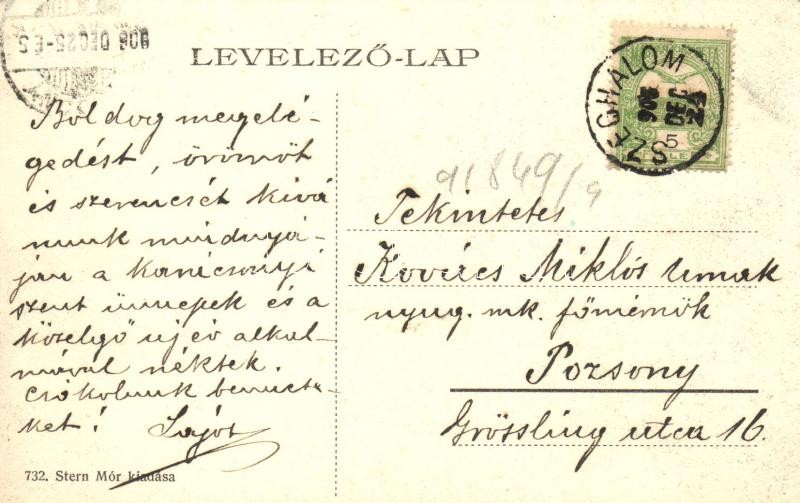 906 DEC 25-E.5
LEVELEZŐ-LAP
SZEGHALOM
906
DEC
24
5
91849/9
Boldog megelé-
gedést, örömöt
és szerencsét kivá
nunk mindnyá-
jan a karácsonyi
szent ünnepek és a
közelgő új év alkal-
mával néktek.
Csókolunk bennete-
ket! Lajos
Tekintetes
Kovács Miklós urnak
nyug. mk. főmérnök
Pozsony
Grössling utca 16.
732. Stern Mór kiadása